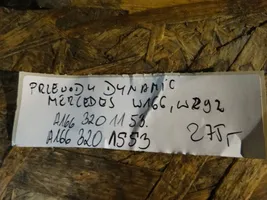 PRIEVODY DYNAMIC
MERCEDES W166, W292
A166 320 11 53.
A166 320 1553
275,-